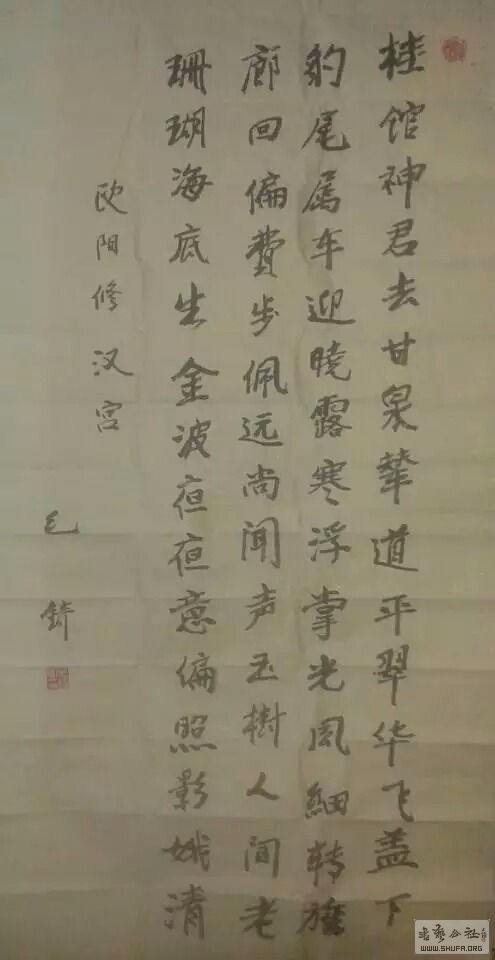 桂馆神君去甘泉辇道平翠华飞盖下
豹尾属车迎曉露寒浮掌光风細轉旌
廊回偏費步佩远尚闻声玉樹人间老
珊瑚海底生金波夜夜意偏照影娥清
欧阳修汉宫
毛錡
书艺公社
WWW.SHUFA.ORG